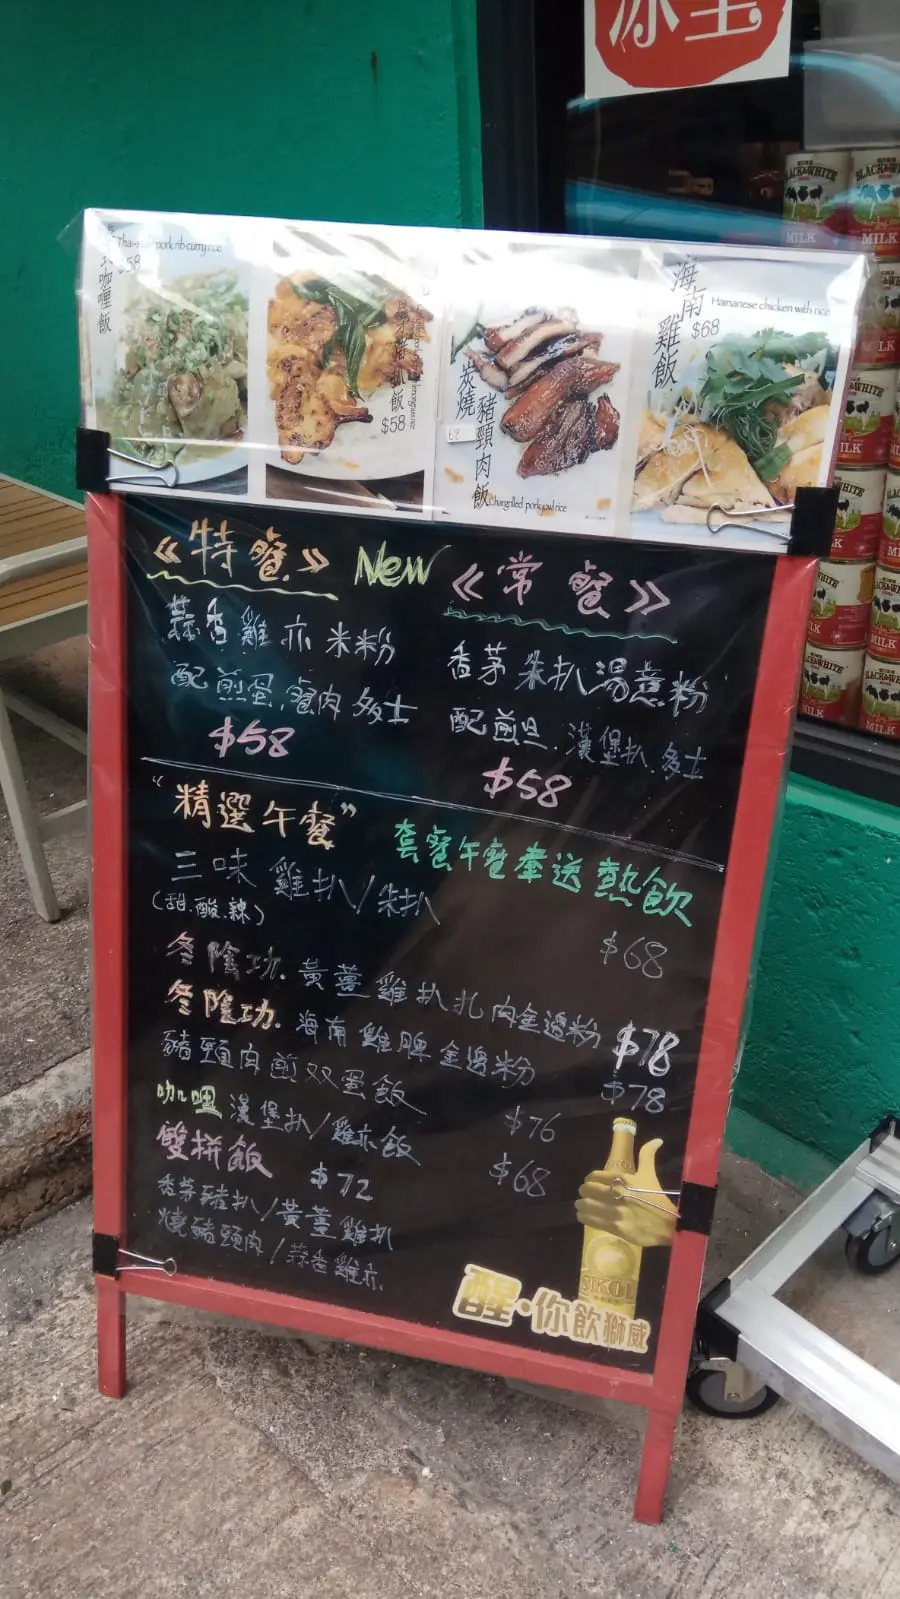 冰室
BLACK&WHITE
MILK
BLACK&WHITE
MILK
pork rib curry rice
咖喱飯
$58
豬扒飯
lemongrass
$58
炭燒
豬頸肉飯
68
Chargrilled pork jowl rice
海南
雞飯
Hainanese chicken with rice
$68
《特餐》 New
蒜香雞亦米粉
配煎蛋.餐肉多士
$58
《常餐》
香茅朱扒湯意粉
配煎旦.漢堡扒.多士
$58
“精選午餐”
套餐午餐奉送熱飲
三味雞扒/朱扒
(甜.酸.辣)
$68
冬陰功.黃薑雞扒扎肉金邊粉 $78
冬陰功.海南雞脾金邊粉 $78
豬頸肉煎双蛋飯 $76
咖哩漢堡扒/雞亦飯 $68
雙拼飯 $72
香茅豬扒/黃薑雞扒
燒豬頸肉/蒜香雞亦
SKOL
醒·你飲獅威